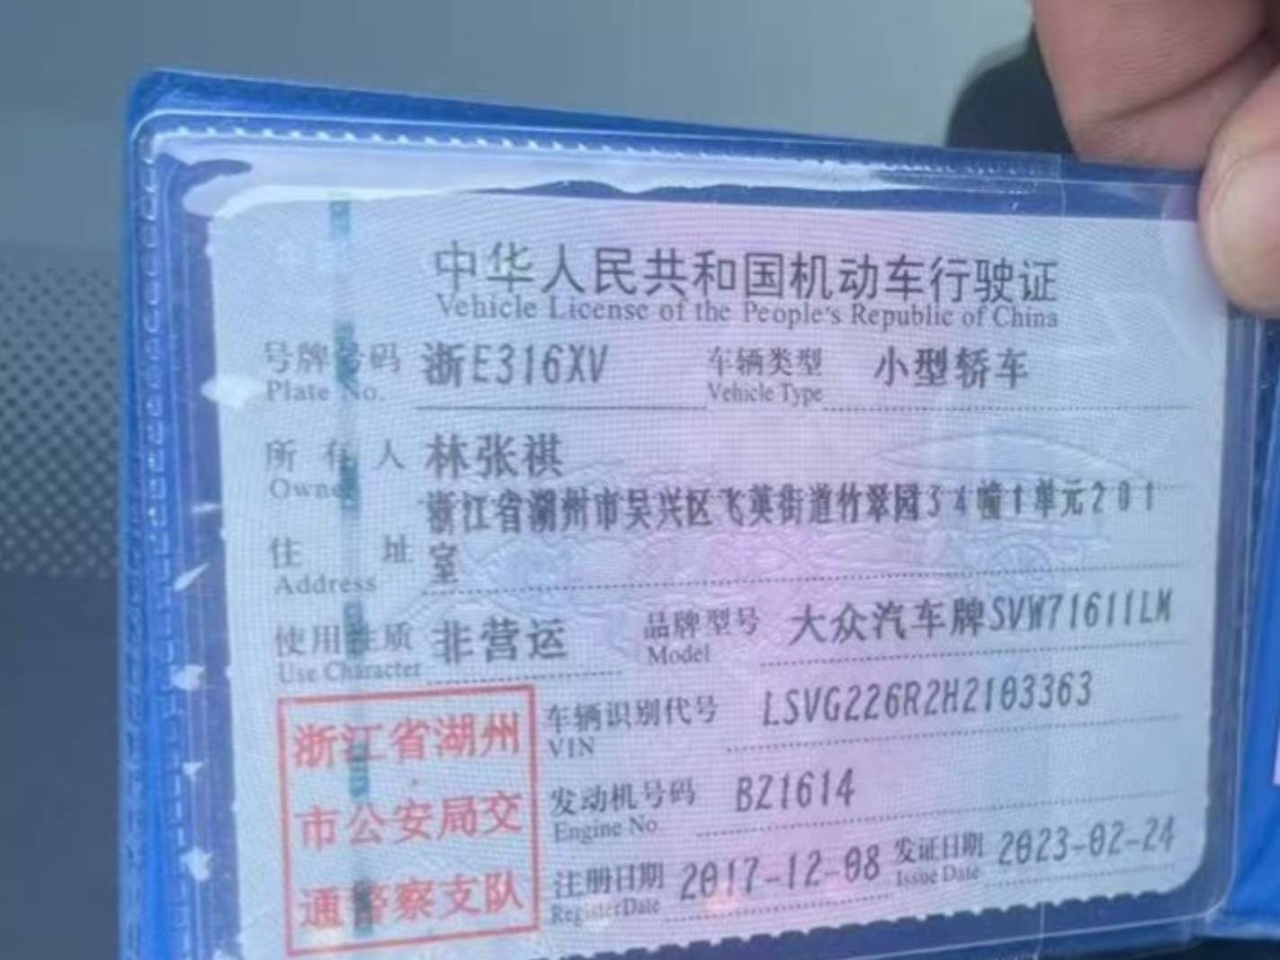 中华人民共和国机动车行驶证
Vehicle License of the People's Republic of China
号牌号码 浙E316XV 车辆类型 小型轿车
Plate No. Vehicle Type
所有人 林张祺
Owner
浙江省湖州市吴兴区飞英街道竹翠园34幢1单元201
住址 室
Address
使用性质 非营运 品牌型号 大众汽车牌SVW71611LM
Use Character Model
浙江省湖州
市公安局交
通警察支队
车辆识别代号 LSVG226R2H2103363
VIN
发动机号码 BZ1614
Engine No.
注册日期 2017-12-08 发证日期 2023-02-24
Register Date Issue Date